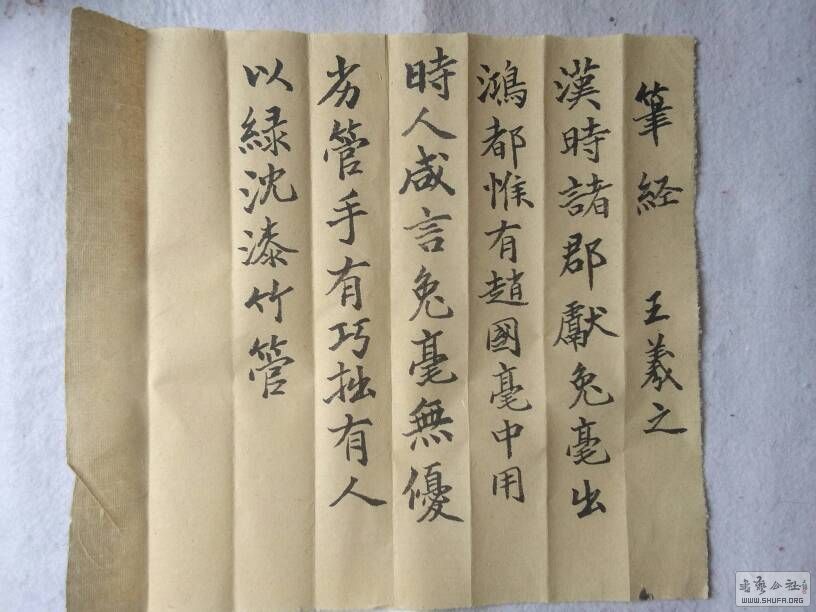 筆経 王羲之
漢時諸郡獻兔毫出
鴻都惟有趙國毫中用
時人咸言兔毫無優
劣管手有巧拙有人
以緑沈漆竹管
書藝公社
WWW.SHUFA.ORG